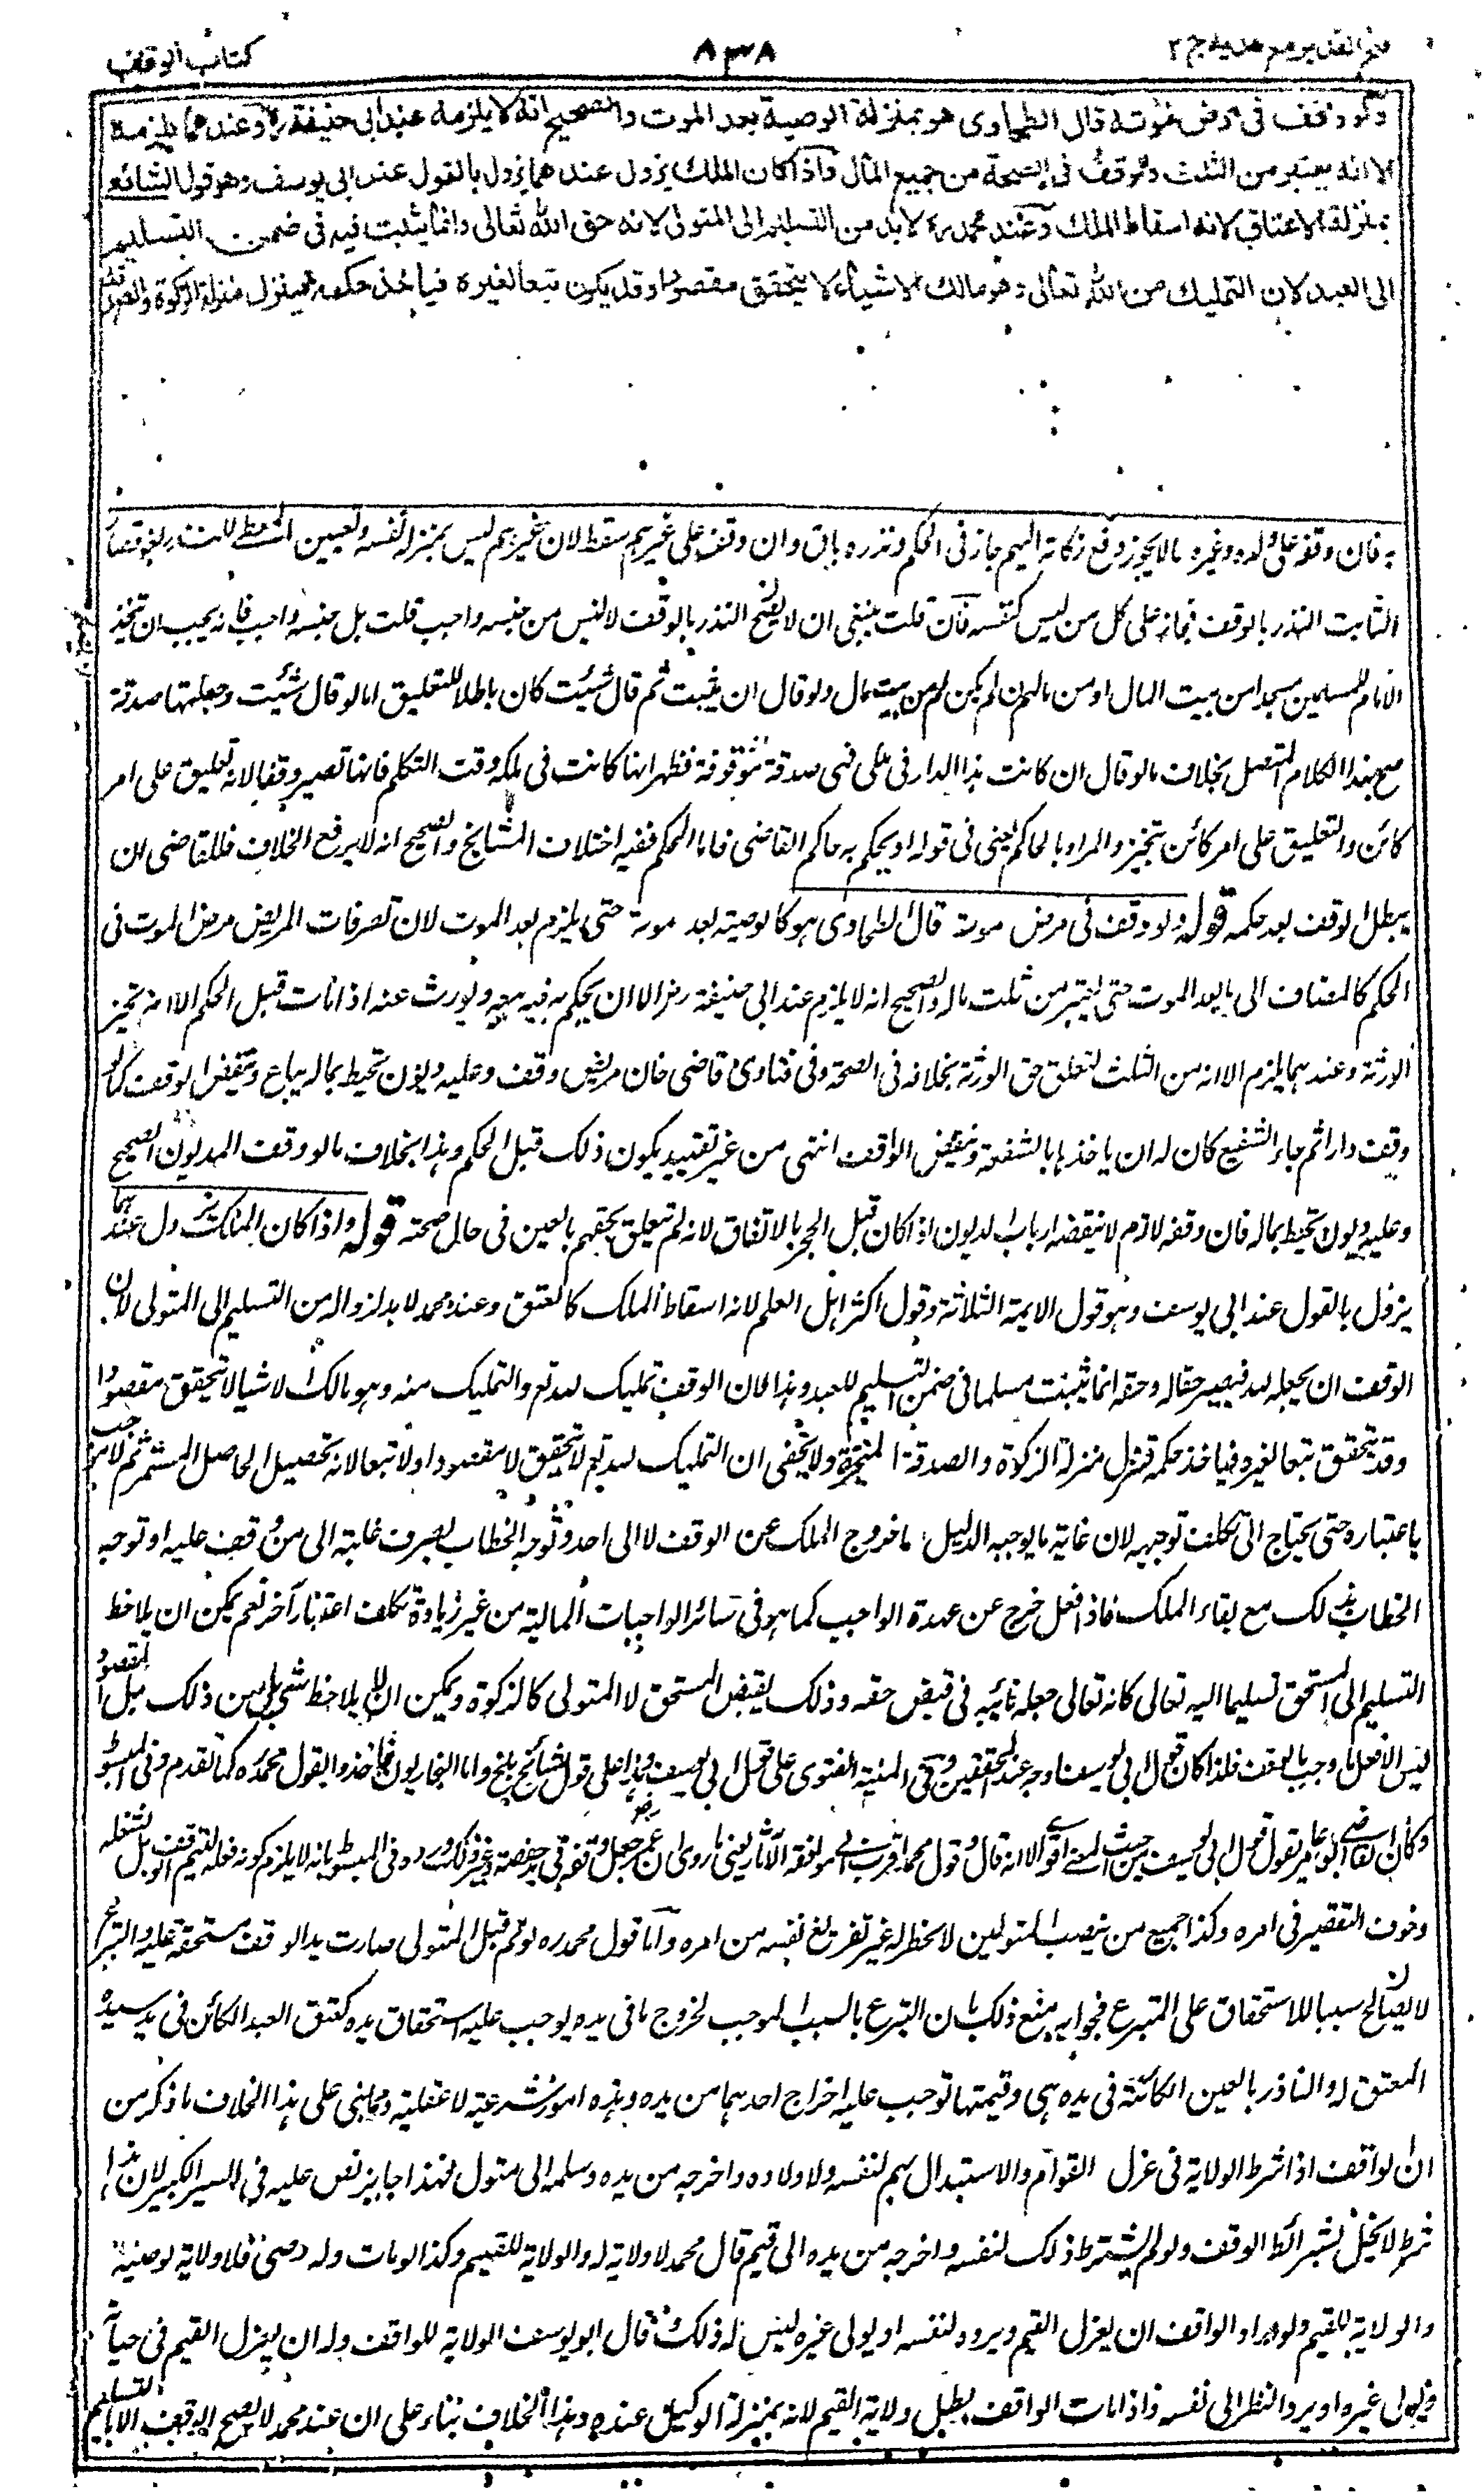 فتح القدير مع هداية ج ٢
٨٣٨
كتاب الوقف
ولو وقف في مرض موته قال الطحاوي هو بمنزلة الوصية بعد الموت والصحيح انه لا يلزمه عند ابي حنيفة ره وعندهما يلزمه
الا انه يعتبر من الثلث والوقف في الصحة من جميع المال واذا كان الملك يزول عندهما يزول بالقول عند ابي يوسف وهو قول الشافعي
بمنزلة الاعتاق لانه اسقاط الملك وعند محمد ره لا بد من التسليم الى المتولي لانه حق الله تعالى وانما يثبت فيه في ضمن التسليم
الى العبد لان التمليك من الله تعالى وهو مالك الاشياء لا يتحقق مقصودا وقد يكون تبعا لغيره فيأخذ حكمه فينزل منزلة الزكوة والصدقة
به فان وقفه على ولده وغيره ممالا يجوز دفع زكاته اليهم جاز في الحكم ونذره باق وان وقف على غيرهم سقط لان غيرهم ليس بمنزلة نفسه وتعيين
الثابت النذر بالوقف فجاز على كل من ليس كنفسه فان قلت ينبغي ان لا يصح النذر بالوقف لانه ليس من جنسه واجب قلت بل من جنسه واجب فانه يجب ان يتخذ
الامام للمسلمين مسجدا من بيت المال او من مالهم ان لم يكن لهم بيت مال ولو قال ان شئت ثم قال شئت كان باطلا للتعليق اما لو قال شئت وجعلتها صدقة
صح بهذا الكلام المتصل بخلاف ما لو قال ان كانت هذا الدار في ملكي فهي صدقة موقوفة فظهر انها كانت في ملكه وقت التكلم فانها تصير وقفا لانه تعليق على امر
كائن والتعليق على امر كائن تنجيز والمراد بالحاكم يعني في قوله او يحكم به حاكم القاضي فاما المحكم ففيه اختلاف المشايخ والصحيح انه لا يرفع الخلاف فللقاضي ان
يبطل الوقف بعد حكمه قوله ولو وقف في مرض موته قال الطحاوي هو كالوصية بعد موته حتى يلزم بعد الموت لان تصرفات المريض مرض الموت في
الحكم كالمضاف الى ما بعد الموت حتى يعتبر من ثلث ماله والصحيح انه لا يلزم عند ابي حنيفة رح الا ان يحكم به فيبيعه ويورث عنه اذا مات قبل الحكم الا انه تجيز
الورثة وعندهما يلزم الا انه من الثلث لتعلق حق الورثة بخلافه في الصحة وفي فتاوى قاضي خان مريض وقف وعليه ديون تحيط بماله يباع وينقض الوقف كما لو
وقف دارا ثم جاء الشفيع كان له ان ياخذها بالشفعة وينقض الوقف انتهى من غير تقييد بكون ذلك قبل الحكم وهذا بخلاف ما لو وقف المديون الصحيح
وعليه ديون تحيط بماله فان وقفه لازم لا ينقضه ارباب الديون اذا كان قبل الحجر بالاتفاق لانه لم يتعلق حقهم بالعين في حال صحته قوله واذا كان الملك يزول عندهما
يزول بالقول عند ابي يوسف وهو قول الايمة الثلاثة وقول اكثر اهل العلم لانه اسقاط الملك كالعتق وعند محمد لا بد لزواله من التسليم الى المتولي لان
الوقف ان يجعله لله فيصير حقا له وحقه انما يثبت مسلما في ضمن التسليم للعبد وهذا لان الوقف تمليك لله تع والتمليك منه وهو مالك الاشيا لا يتحقق مقصودا
وقد يتحقق تبعا لغيره فياخذ حكمه فنزل منزلة الزكوة والصدقة المنجزة ولا يخفى ان التمليك لله تع لا يتحقق لا مقصودا ولا تبعا لانه تحصيل الحاصل المستمر ثم لا موجب
باعتباره حتى يحتاج الى تكلف توجيهه لان غاية ما يوجبه الدليل اما خروج الملك عن الوقف لا الى احد وتوجه الخطاب بصرف غلته الى من وقف عليه او توجه
الخطاب بذلك مع بقاء الملك فاذا فعل خرج عن عهدة الواجب كما هو في سائر الواجبات المالية من غير زيادة تكلف اعتبار آخر نعم يمكن ان يلاحظ
التسليم الى المستحق تسليما اليه تعالى كانه تعالى جعله نائبه في قبض حقه وذلك بقبض المستحق لا المتولي كالزكوة ويمكن ان لا يلاحظ شئ من ذلك بل المقصود
ليس الا فعل ما وجب بالوقف فلذا كان قول ابي يوسف اوجه عند المحققين وفي المنية الفتوى على قول ابي يوسف وهذا على قول مشايخ بلخ واما البخاريون فاخذوا بقول محمد ره كما تقدم وفي المبسوط
وكان القاضي ابو عاصم يقول قول ابي يوسف من حيث المعنى اقوى الا انه قال وقول محمد اقرب الى موافقة الآثار يعني ما روى ان عمر رض جعل وقفه في يد حفصة وغير ذلك ورده في المبسوط بانه لا يلزم كونه فعله ليتم الوقف بل لشغله
وخوف التقصير في امره وكذا جميع من ينصب المتولين لا يخطر له غير تفريغ نفسه من امره واما قول محمد ره لو تم قبل المتولي صارت يد الواقف مستحقة عليه والتبرع
لا يصلح سببا للاستحقاق على المتبرع فجوابه منع ذلك بان التبرع بالسبب الموجب لخروج ما في يده يوجب عليه استحقاق يده كعتق العبد الكائن في يد سيده
المعتق له والناذر بالعين الكائنة في يده هي وقيمتها توجب عليه اخراج احدهما من يده وهذه امور شرعية لا عقلية ومما ينبني على هذا الخلاف ما ذكر من
ان الواقف اذا شرط الولاية في عزل القوام والاستبدال بهم لنفسه ولاولاده واخرجه من يده وسلمه الى متول فهذا جايز نص عليه في السير الكبير لان هذا
شرط لا يخل بشرائط الوقف ولو لم يشترط ذلك لنفسه واخرجه من يده الى قيم قال محمد لا ولاية له والولاية للقيم وكذا لو مات وله وصى فلا ولاية لوصيه
والولاية للقيم ولو اراد الواقف ان يعزل القيم ويرده لنفسه او يولى غيره ليس له ذلك وقال ابو يوسف الولاية للواقف وله ان يعزل القيم في حياته
ويولى غيره او يرد النظر الى نفسه واذا مات الواقف بطل ولاية القيم لانه بمنزلة الوكيل عنده وهذا الخلاف بناء على ان عند محمد لا يصح الوقف الا بالتسليم